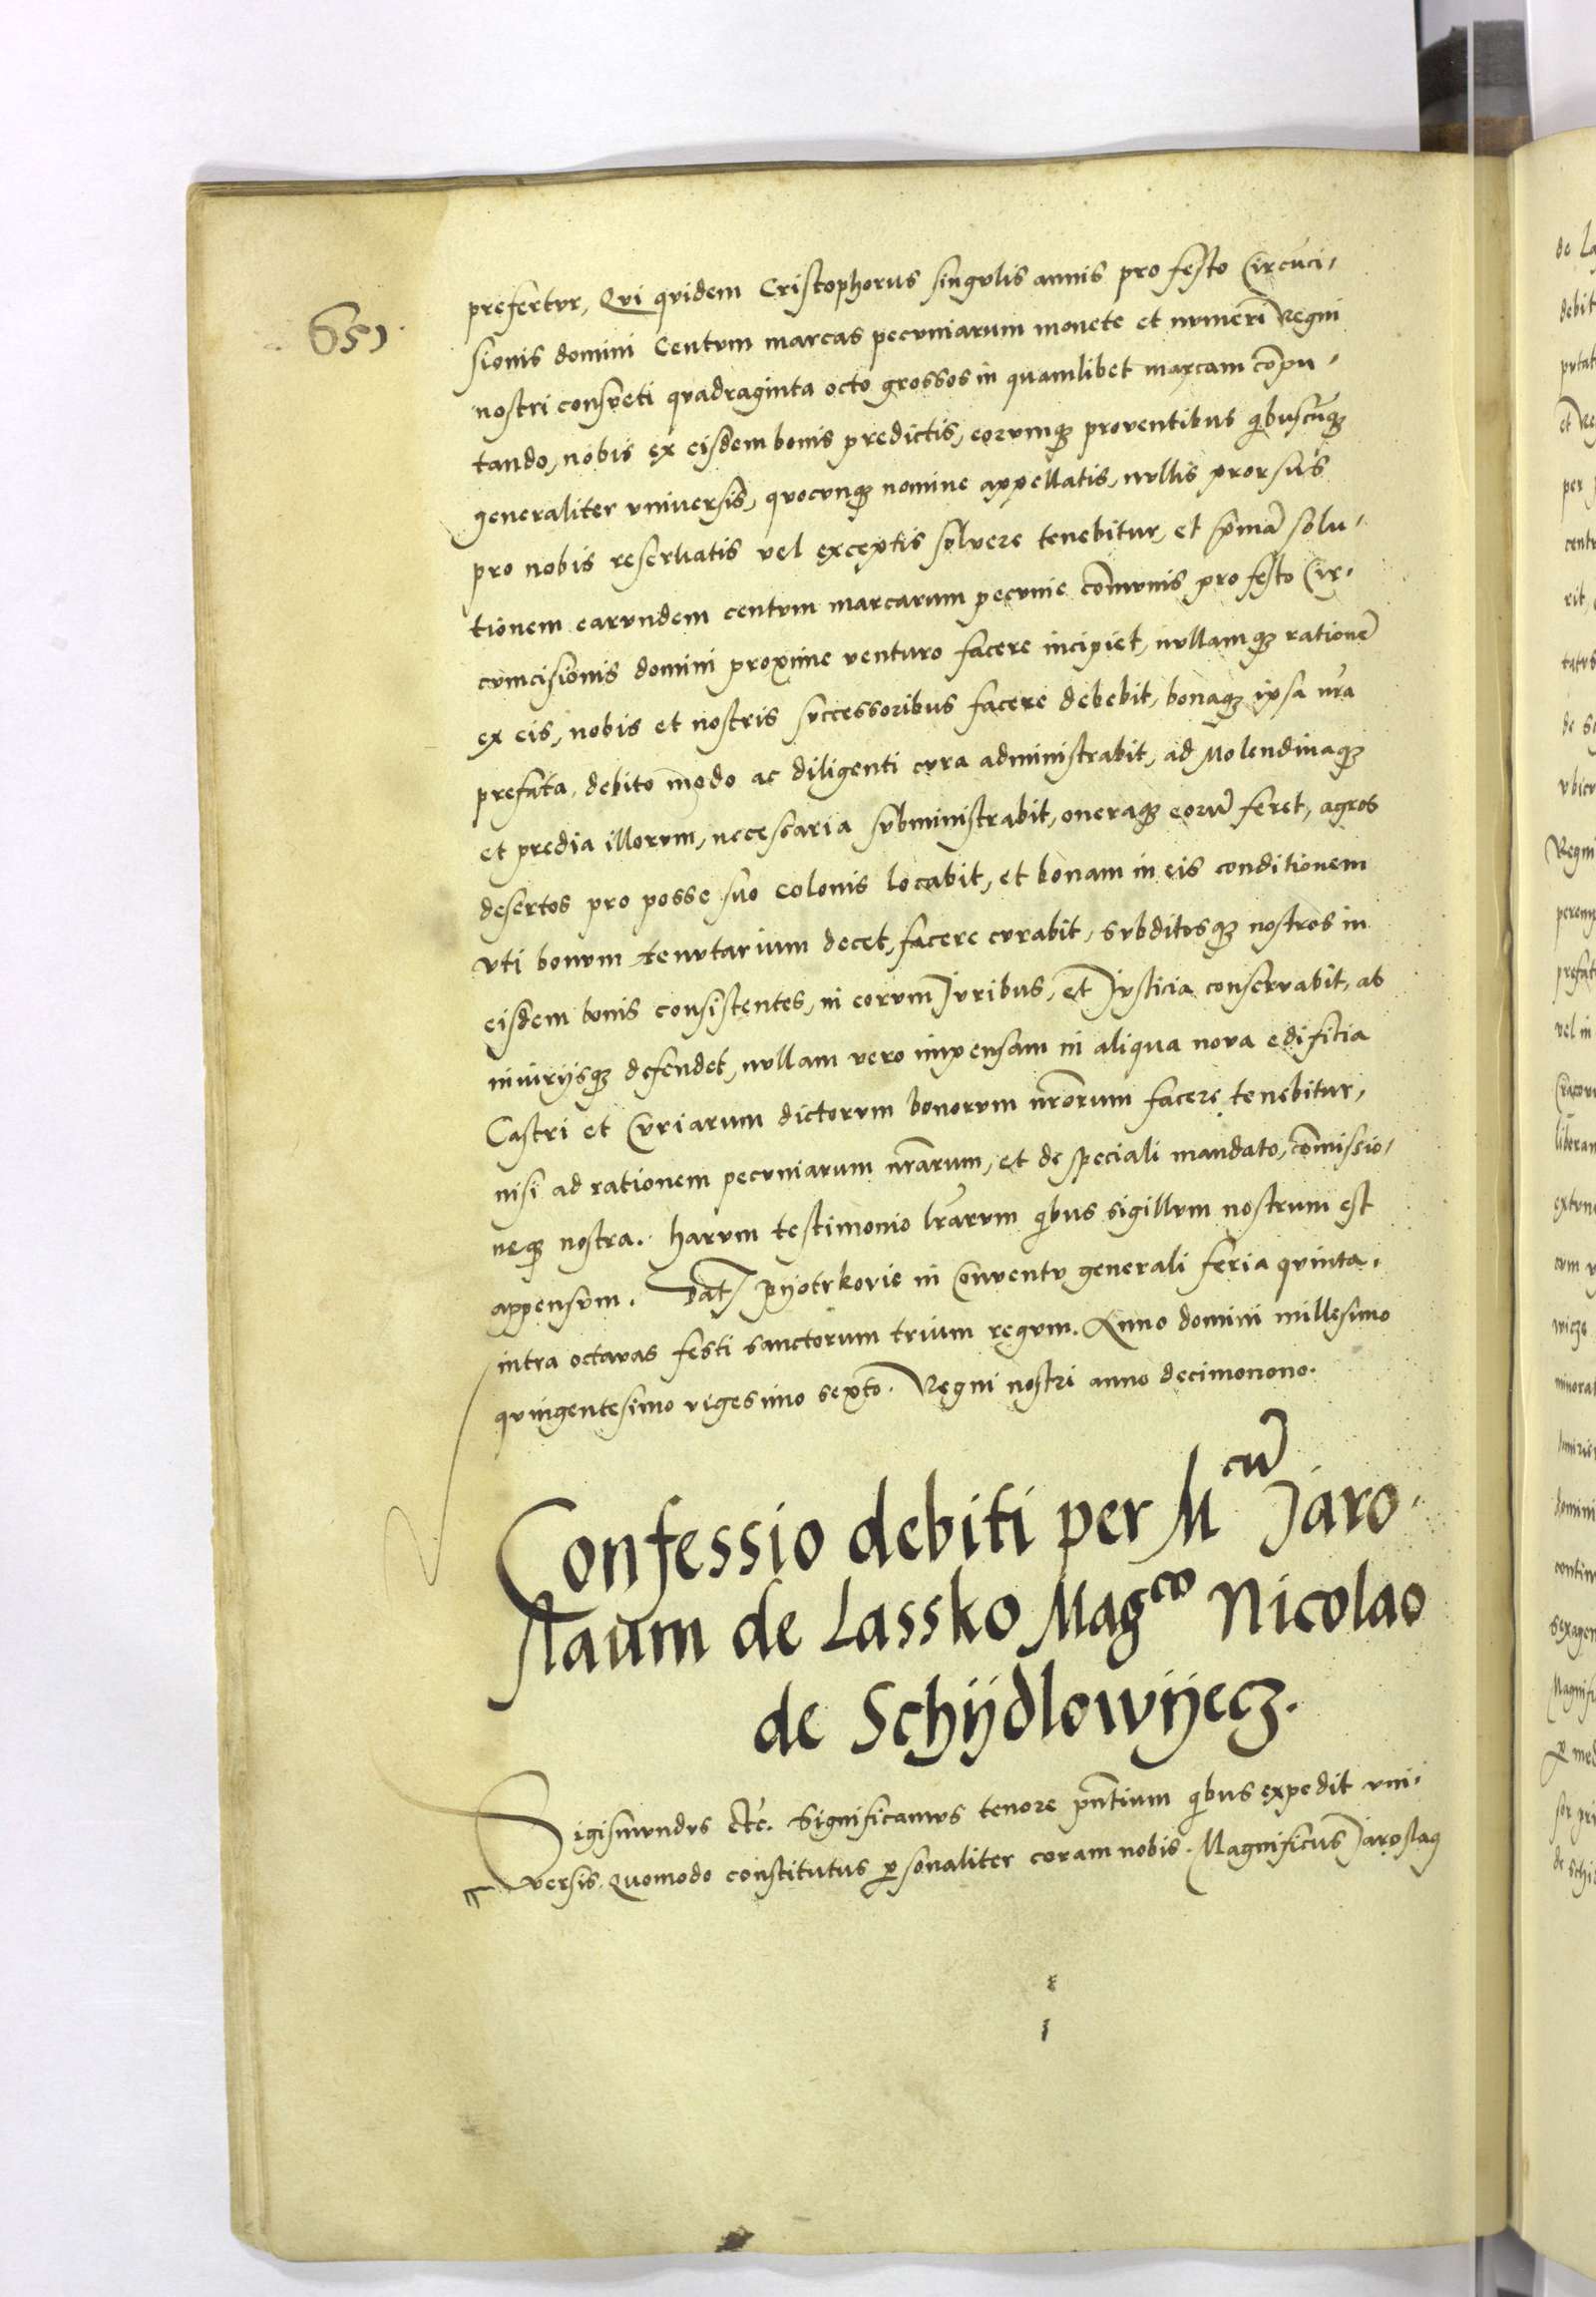 651
prefertvr, Qvi qvidem Cristophorus singvlis annis pro festo Circūci-
sionis domini Centvm marcas pecvniarum monete et nvmeri Regni
nostri consveti qvadraginta octo grossos in quamlibet marcam cōpu-
tando, nobis ex eisdem bonis predictis, eorvmqȝ proventibus qibuscūqȝ
generaliter vniversis, qvocvnqȝ nomine appellatis, nvllis prorsus
pro nobis reservatis vel exceptis solvere tenebitur, et pͥmā solu-
tionem earvndem centvm marcarum pecvnie cōmvnis pro festo Cir-
cvmcisionis domini proxime venturo facere incipiet, nvllamqȝ rationē
ex eis, nobis et nostris svccessoribus facere debebit, bonaqȝ ipsa nr̄a
prefata, debito modo ac diligenti cvra administrabit, ad Molendinaqȝ
et predia illorvm, necessaria svbministrabit, oneraqȝ eorū feret, agros
desertos pro posse svo colonis locabit, et bonam in eis conditionem
vti bonvm tenvtarium decet, facere cvrabit, svbditosqȝ nostros in
eisdem bonis consistentes, in eorvm Jvribus, et Jvsticia conservabit, ab
iniurijsqȝ defendet, nvllam vero impensam in aliqua nova edificia
Castri et Cvriarum dictorvm bonorvm nr̄orum facere tenebitur,
nisi ad rationem pecvniarum nr̄arum, et de speciali mandato, cōmissio-
neqȝ nostra. Harvm testimonio lr̄arvm qibus sigillvm nostrum est
appensvm. Dat̄ Pyotrkovie in Conventv generali feria qvinta.
intra octavas festi sanctorum trium regvm. Anno domini millesimo
qvingentesimo vigesimo sexto. Regni nostri anno decimonono.
Confessio debiti per Mcū Jaro-
slaum de Lassko Magco Nicolao
de Schijdlowijecz.
Sigismvndvs etc̄. Significamvs tenore pn̄tium qibus expedit vni-
versis. Qvomodo constitutus ꝑsonaliter coram nobis. Magnificus Jaroslaꝯ